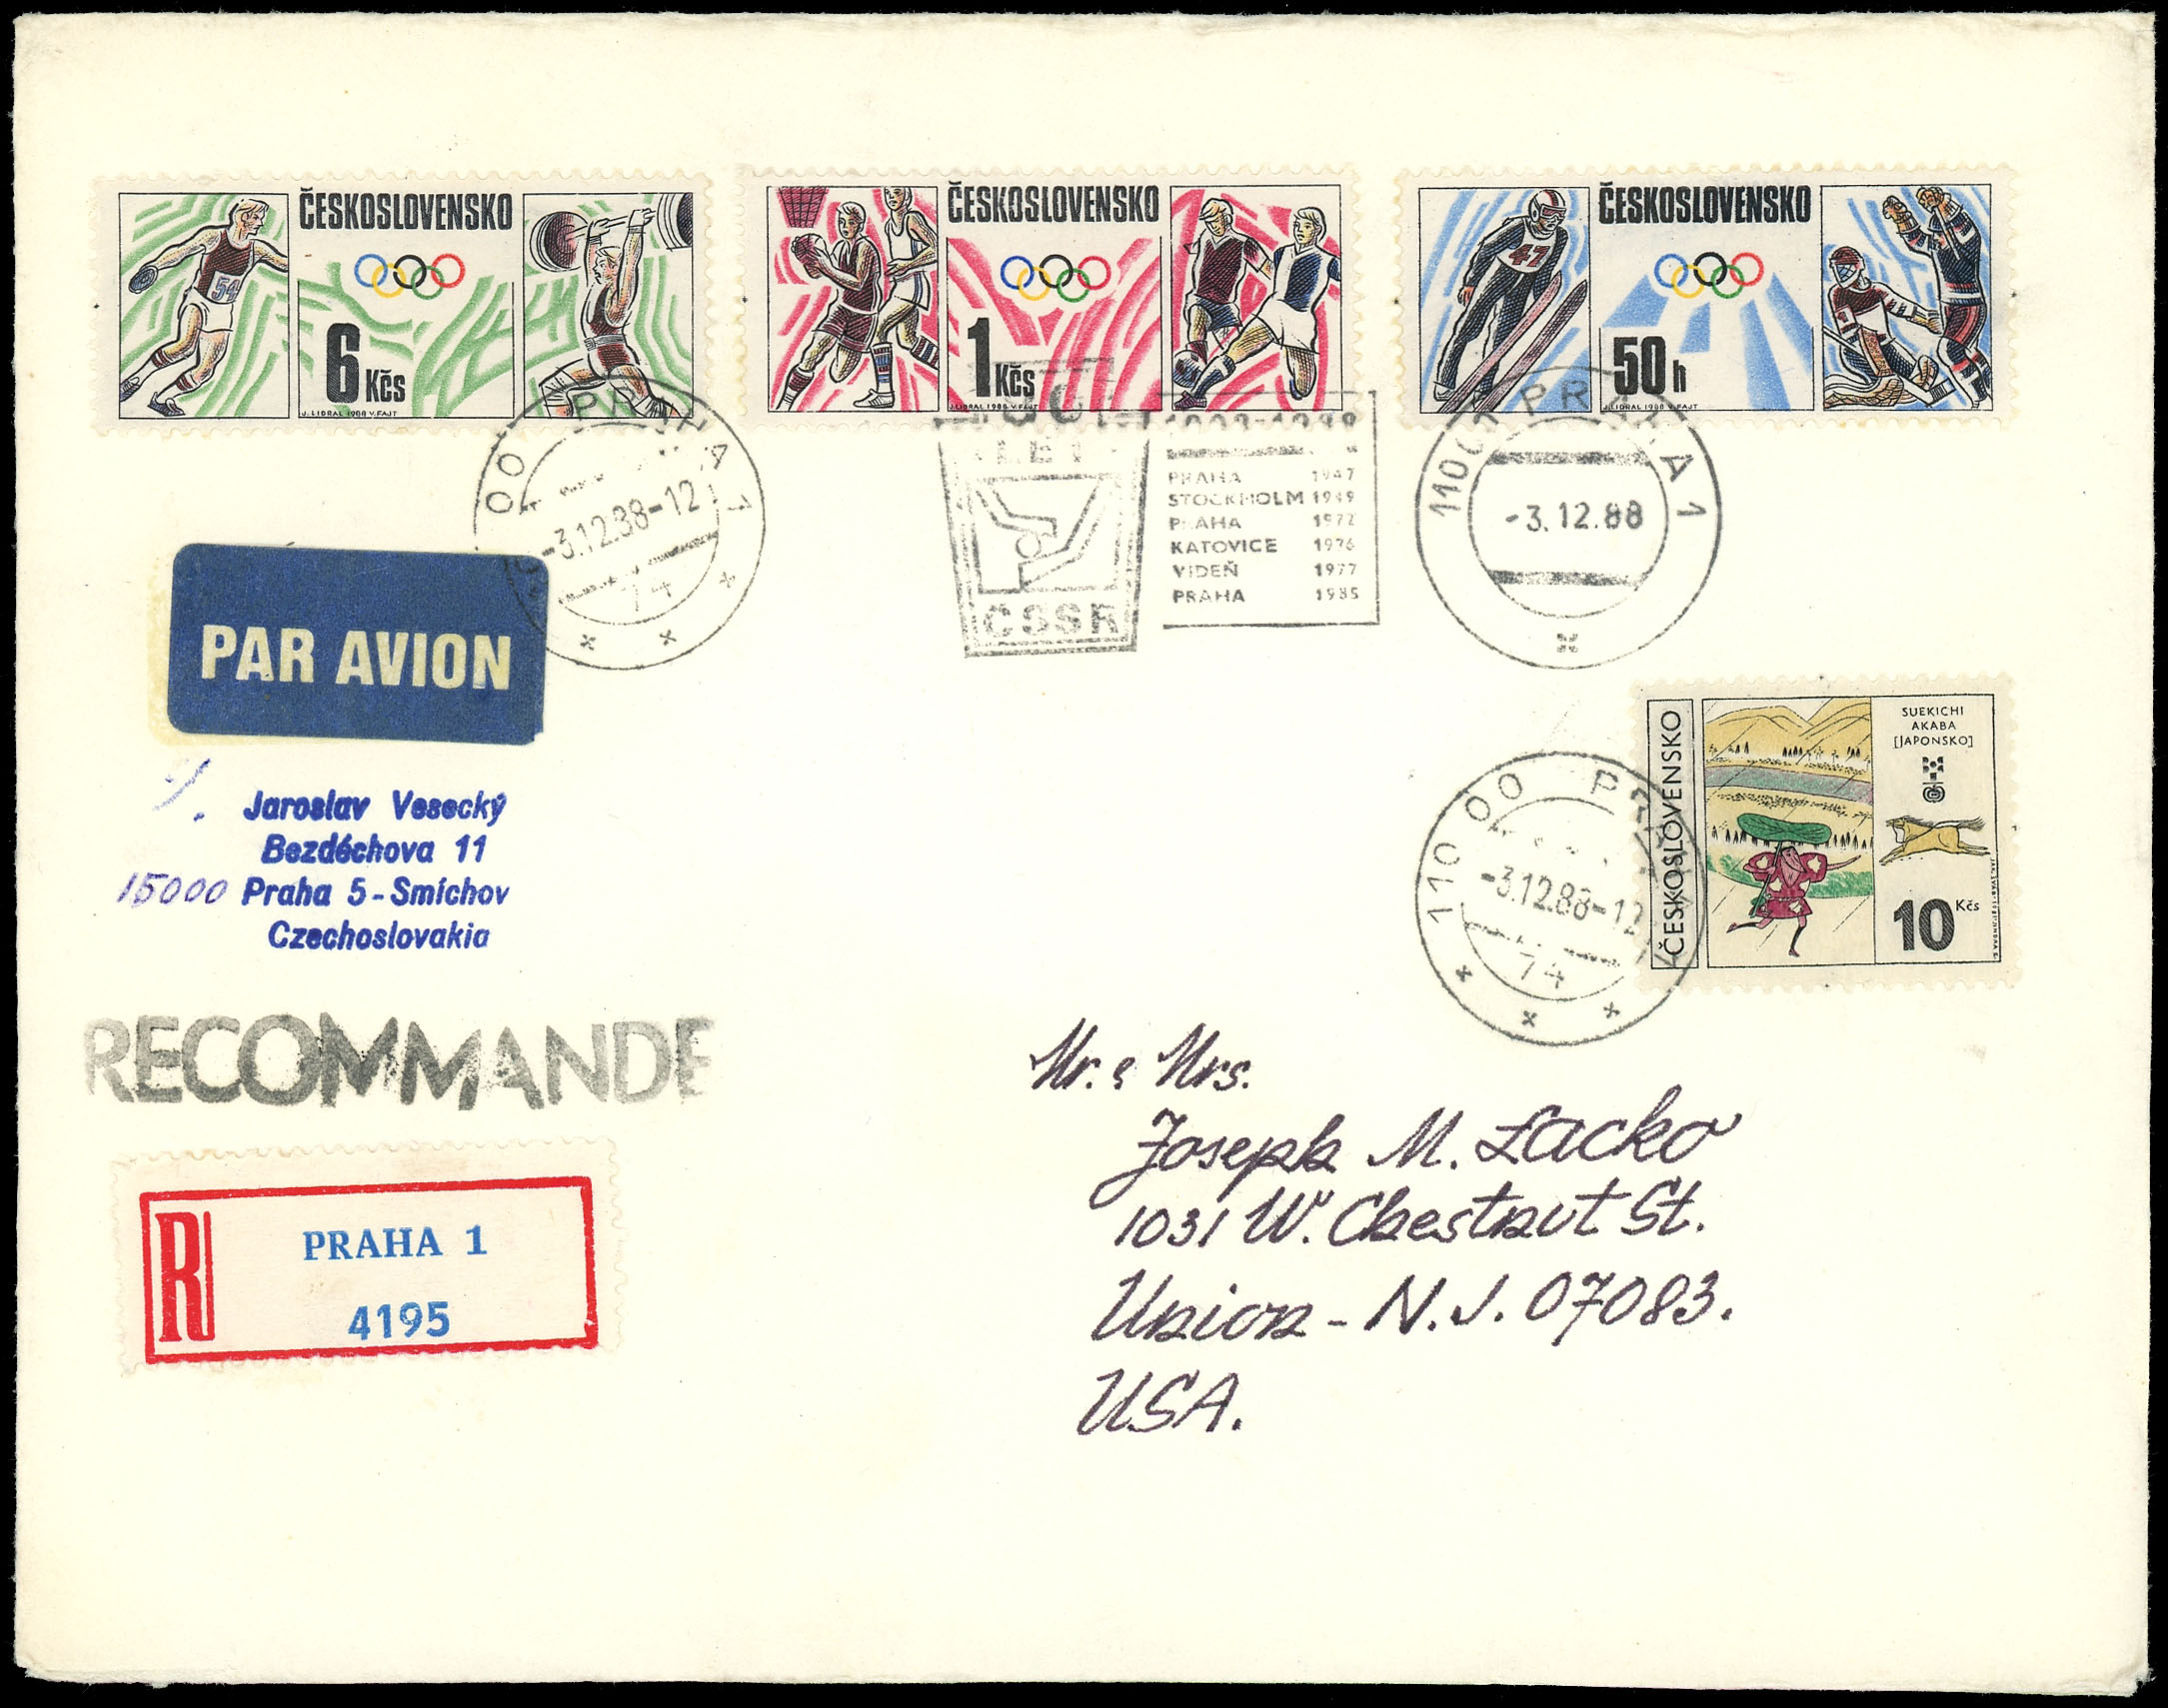 ČESKOSLOVENSKO
54
6 Kčs
J. LIDRAL 1988 V. FAJT
ČESKOSLOVENSKO
1 Kčs
J. LIDRAL 1988 V. FAJT
ČESKOSLOVENSKO
47
50 h
J. LIDRAL 1988 V. FAJT
00 PRAHA 1
-3.12.88-12
74
LET
ČSSR
1908-1988
PRAHA 1947
STOCKHOLM 1949
PRAHA 1972
KATOVICE 1976
VIDEŇ 1977
PRAHA 1985
110 00 PRAHA 1
-3.12.88
PAR AVION
ČESKOSLOVENSKO
SUEKICHI
AKABA
[JAPONSKO]
10 Kčs
110 00 PRAHA
-3.12.88-12
74
Jaroslav Vesecký
Bezděchova 11
15000 Praha 5-Smíchov
Czechoslovakia
RECOMMANDE
R
PRAHA 1
4195
Mr. & Mrs.
Joseph M. Lacko
1031 W. Chestnut St.
Union - N.J. 07083.
USA.